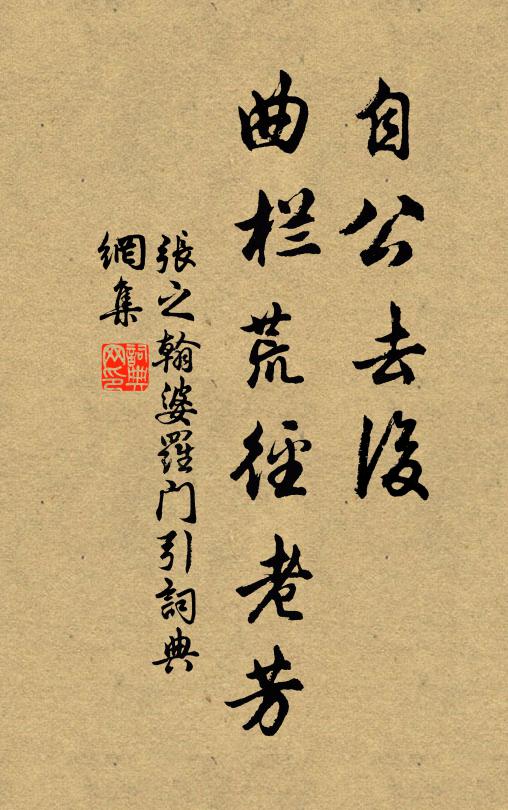 自公去後
曲栏荒径老芳
張之翰婆羅門引詞典
網集
詞典
网印